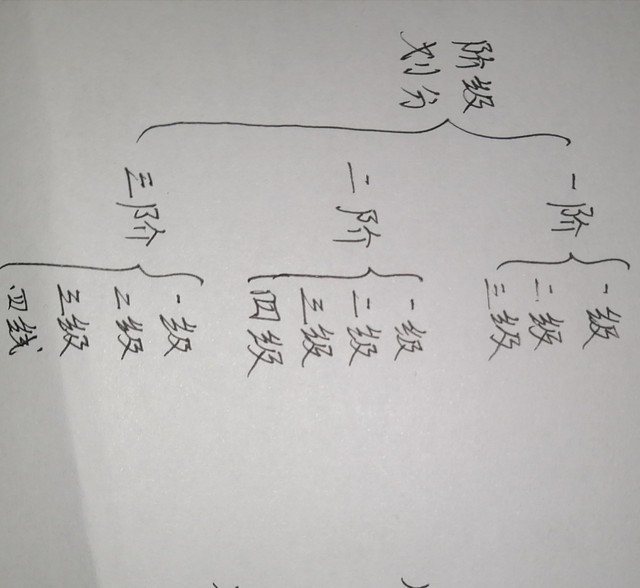 阶级
划分
一阶
一级
二级
三级
二阶
一级
二级
三级
四级
三阶
一级
2级
三级
四线